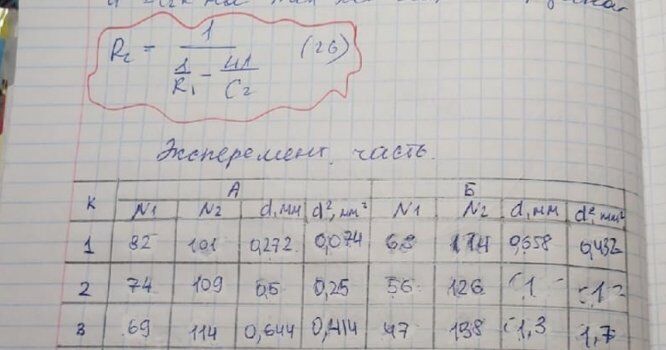 R₂ = 1 / (1/R₁ - 41/C₂) (26)
Эксперемент. часть.
К А Б
N1 N2 d,мм d²,мм² N1 N2 d,мм d²,мм²
1 82 101 0,272 0,074 63 114 0,658 0,432
2 74 109 0,5 0,25 56 126 1 1
3 69 114 0,644 0,414 47 138 1,3 1,7